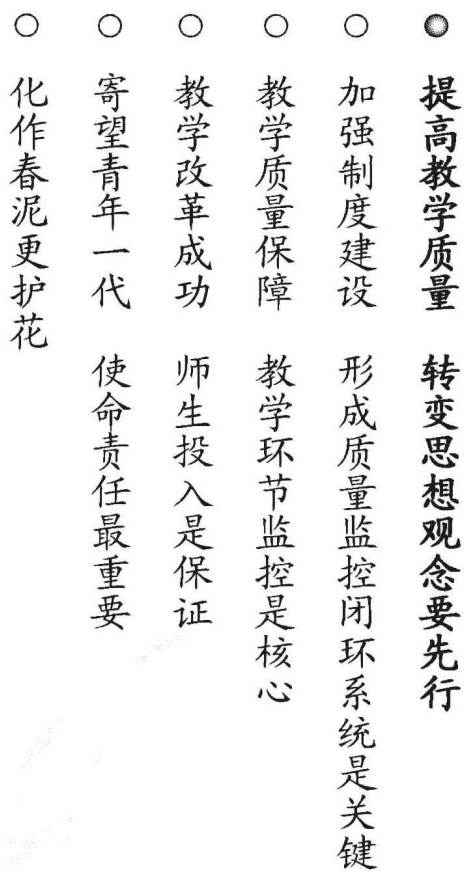 提高教学质量 转变思想观念要先行
加强制度建设 形成质量监控闭环系统是关键
教学质量保障 教学环节监控是核心
教学改革成功 师生投入是保证
寄望青年一代 使命责任最重要
化作春泥更护花